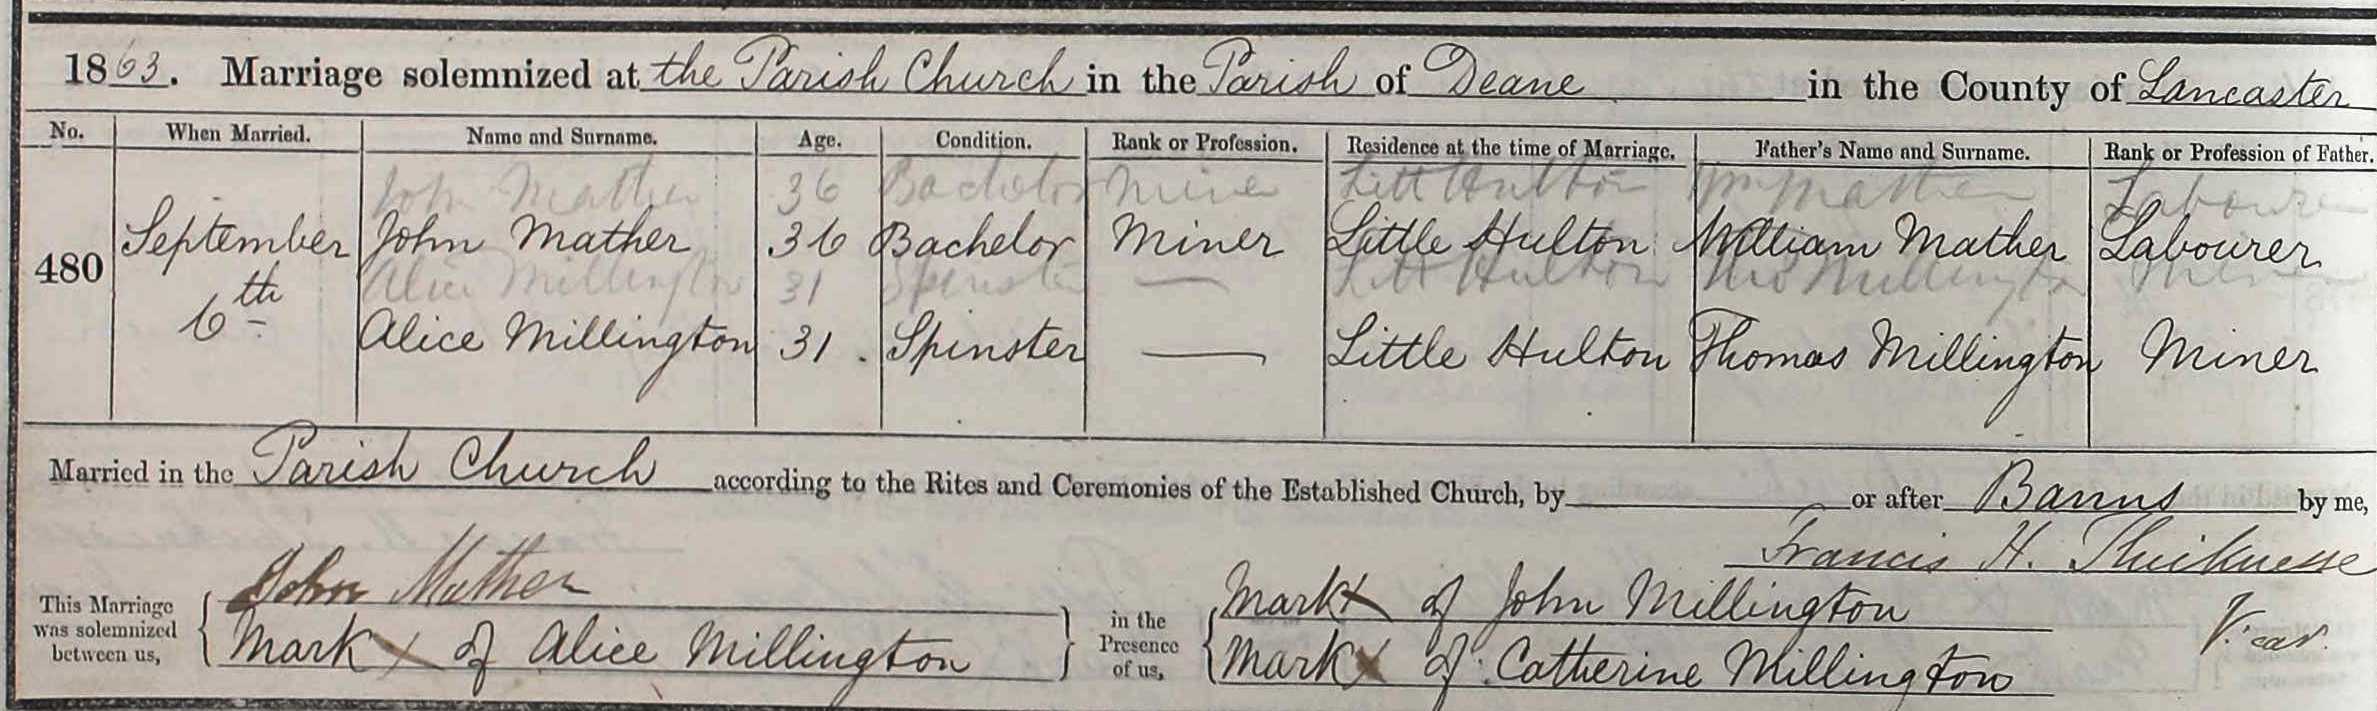 1863. Marriage solemnized at the Parish Church in the Parish of Deane in the County of Lancaster
No. When Married. Name and Surname. Age. Condition. Rank or Profession. Residence at the time of Marriage. Father's Name and Surname. Rank or Profession of Father.
John Mather 36 Bachelor Miner Litt Hulton Wm Mather Labourer
480 September John Mather 36 Bachelor Miner Little Hulton William Mather Labourer
Alice Millington 31 Spinster — Litt Hulton Tho Millington Miner
6th Alice Millington 31. Spinster — Little Hulton Thomas Millington Miner
Married in the Parish Church according to the Rites and Ceremonies of the Established Church, by or after Banns by me,
Francis H. Thicknesse
Vicar.
This Marriage was solemnized between us,
John Mather
Mark X of Alice Millington
in the Presence of us,
Mark X of John Millington
Mark X of Catherine Millington